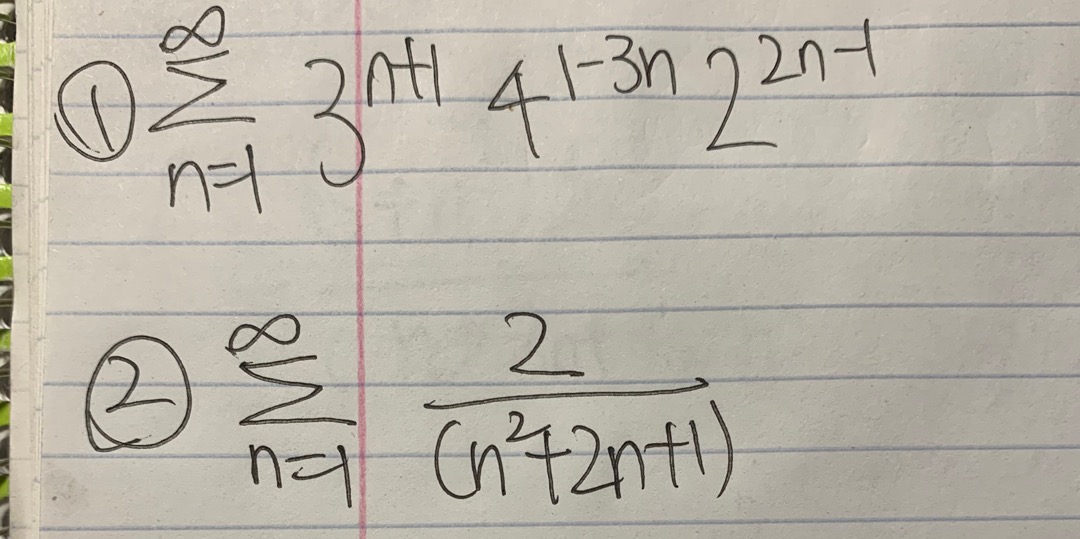 ① ∞ ∑ n=1 3^{n+1} 4^{1-3n} 2^{2n-1}
② ∞ ∑ n=1 2/(n^2+2n+1)